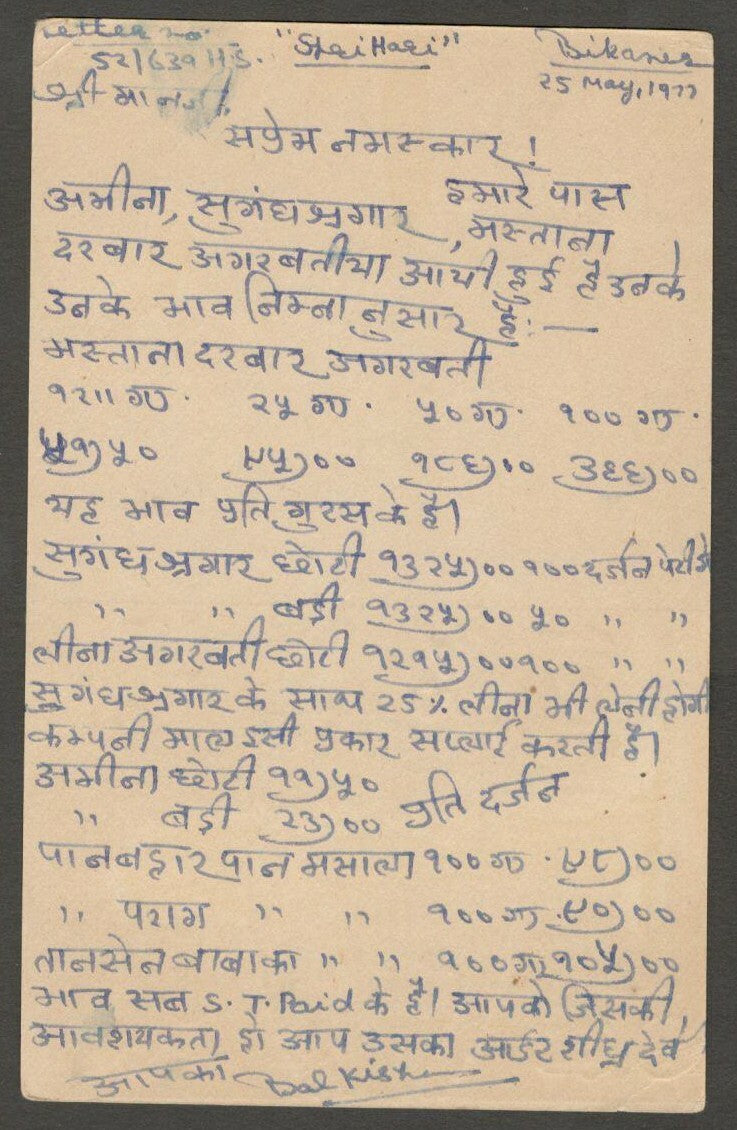 Letter no. "Shri Hari" Bikaner
52/639/ 25 May, 1977
श्री मान
सप्रेम नमस्कार !
हमारे पास
अमीना, सुगंध श्रगार, मस्ताना
दरबार अगरबतीया आयी हुई है उनके
उनके भाव निम्नानुसार है: —
मस्ताना दरबार अगरबती
१२॥ ग्रा. २५ ग्रा. ५० ग्रा. १०० ग्रा.
५१)५० ९५)०० १८६)०० ३६६)००
यह भाव प्रति गुरस के है।
सुगंध श्रगार छोटी १३२५)०० १०० दर्जन पेटी के
" " बडी १३२५)०० ५० " "
लीना अगरबती छोटी १२१५)०० १०० " "
सुगंध श्रगार के साथ 25% लीना भी लेनी होगी
कम्पनी माल इसी प्रकार सप्लाई करती है।
अमीना छोटी ११)५०
" बडी २३)०० प्रति दर्जन
पानबहार पान मसाला १०० ग्रा. ९८)००
" पराग " " १०० ग्रा. ९०)००
तानसेन बाबाका " " १०० ग्रा. १०५)००
भाव सब S. T. Paid के है। आपको जिसकी
आवशयकता हो आप उसका आर्डर शीघ्र देवे
आपका Bal Kishan